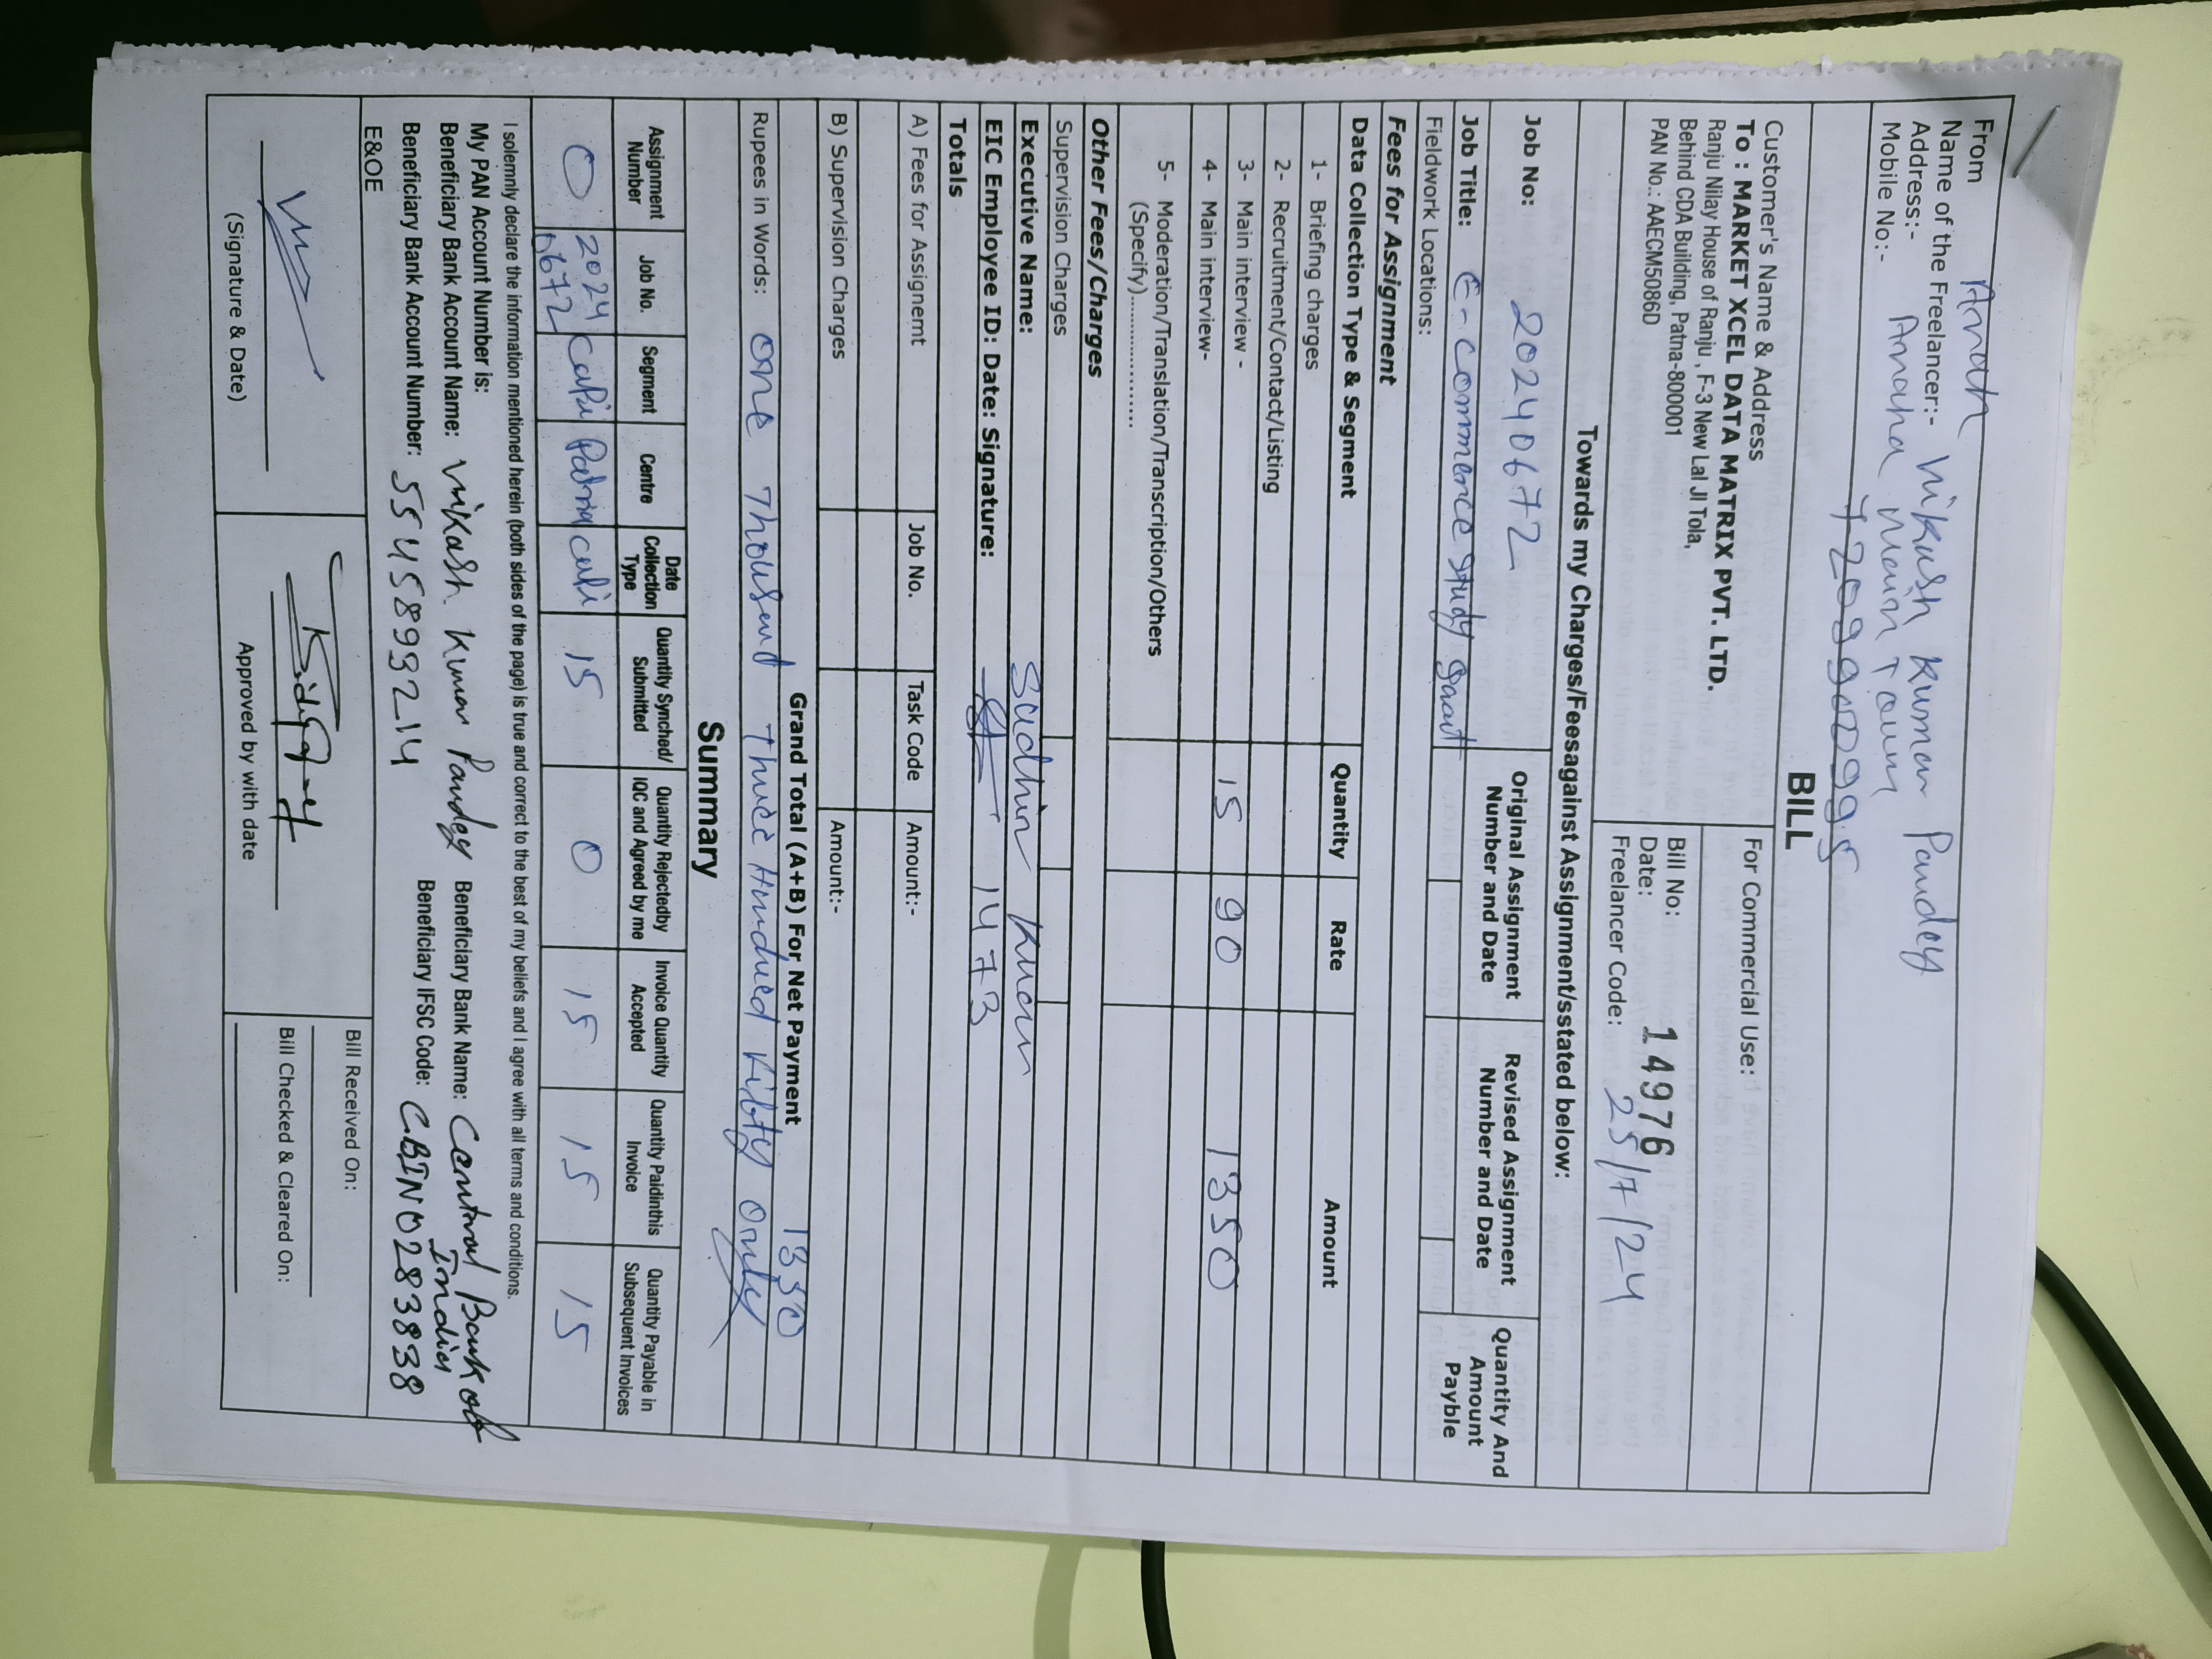 From Arrah
Name of the Freelancer:- Vikash Kumar Pandey
Address:- Arraha Main Town
Mobile No:- 7209900995
BILL
Customer's Name & Address
To : MARKET XCEL DATA MATRIX PVT. LTD.
Ranju Nilay House of Ranju , F-3 New Lal JI Tola,
Behind CDA Building, Patna-800001
PAN No.: AAECM5086D
For Commercial Use:
Bill No: 14976
Date: 25/7/24
Freelancer Code:
Towards my Charges/Feesagainst Assignment/sstated below:
Job No: 20240672
Original Assignment Number and Date
Revised Assignment Number and Date
Quantity And Amount Payble
Job Title: E-Commerce Study
Fieldwork Locations:
Fees for Assignment
Data Collection Type & Segment Quantity Rate Amount
1- Briefing charges
2- Recruitment/Contact/Listing
3- Main interview -
4- Main interview- 15 90 1350
5- Moderation/Translation/Transcription/Others
(Specify)................
Other Fees/Charges
Supervision Charges
Executive Name: Sudhir Kumar
EIC Employee ID: Date: Signature: 1473
Totals
A) Fees for Assignemt Job No. Task Code Amount:-
B) Supervision Charges Amount:-
Grand Total (A+B) For Net Payment 1350
Rupees in Words: One Thousend Three Hundred Fifty Only
Summary
Assignment Number Job No. Segment Centre Date Collection Type Quantity Synched/ Submitted Quantity Rejectedby IQC and Agreed by me Invoice Quantity Accepted Quantity Paidinthis Invoice Quantity Payable in Subsequent Invoices
0 20240672 Capi Patna capi 15 0 15 15 15
I solemnly declare the information mentioned herein (both sides of the page) is true and correct to the best of my beliefs and I agree with all terms and conditions.
My PAN Account Number is:
Beneficiary Bank Account Name: Vikash Kumar Pandey Beneficiary Bank Name: Central Bank of India
Beneficiary Bank Account Number: 5545899214 Beneficiary IFSC Code: CBIN0283838
E&OE
Bill Received On:
Bill Checked & Cleared On:
(Signature & Date)
Approved by with date